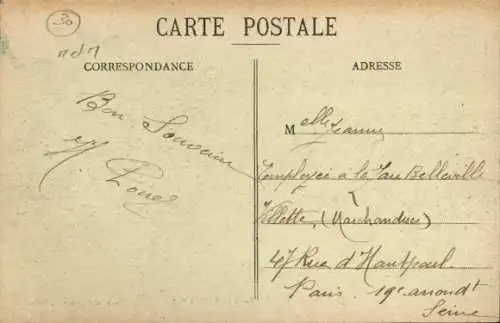 30
CARTE POSTALE
CORRESPONDANCE
ADRESSE
Bon Souvenir
Melle Jeanne
Employée à la Gare Belleville
Villette, (Marchandises)
47 Rue d'Hautpoul.
Paris 19e arrondt
Seine